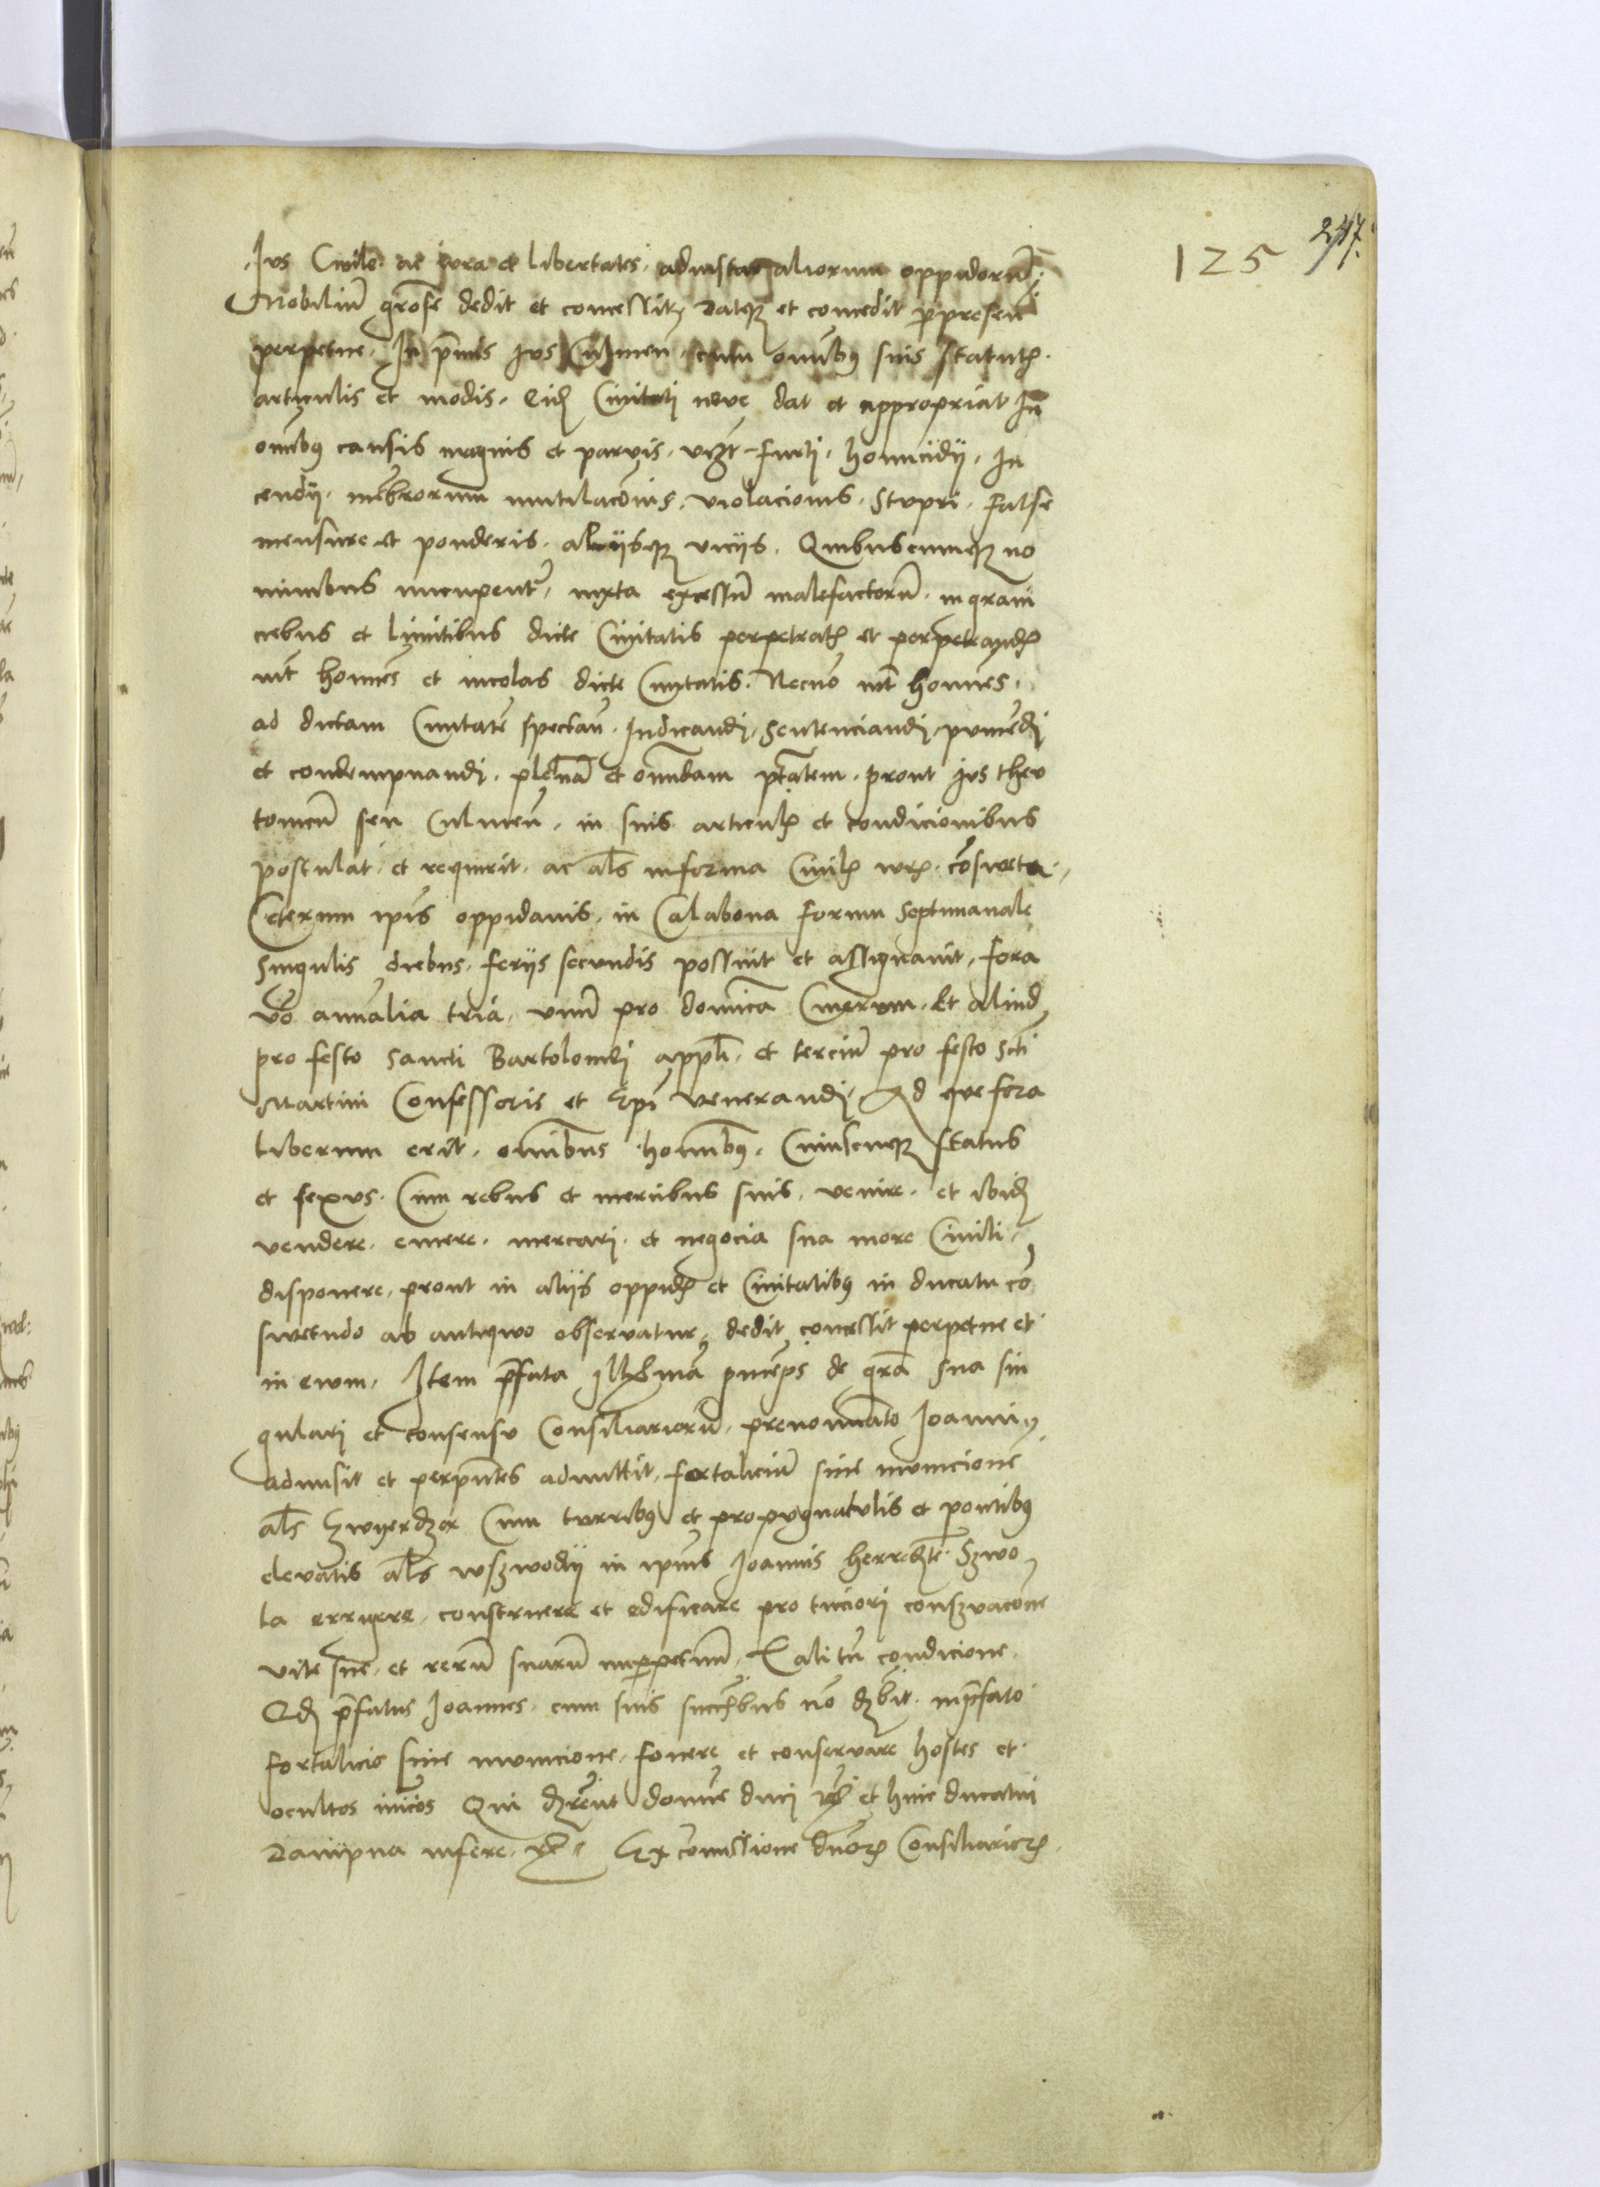 125 247.
Ius Civile ac iura et libertates ad instar aliorum oppidorũ
Nobiliũ grose dedit et concessit, Datq et concedit p presen
perpetue. In pmis ius Culmen cum omibq suis statut
articulis et modis. Eid Civitati nove dat et appropriat In
omibq causis magnis et parvis. vizt furti, homicidij, In
cendij, mēbrorum mutilacõnis, violacionis, stupri, false
mensure et ponderis, alijsq vicijs, Quibuscumq no
minibus nucupent, iuxta excessũ malefactorũ, in grani
ciebus et limitibus dicte Civitatis perpetrat et perpetrand
int homies et incolas dicte Civitatis. Necnõ int homies
ad dictam Civitatē spectan. Iudicandi, sentenciandi, puniēdi
et condempnandi, plenã et omimdam ptatem, prout ius theu
tonicũ seu Culmen, in suis articul et condicionibus
postulat et requirit, ac als in forma Civil iur consueta.
Ceterum ipis oppidanis, in Calabona forum septimanale
singulis diebus ferijs secundis possuit et assignavit, fora
vo annalia tria, vnũ pro domica Cinerum, Et aliud
pro festo sancti Bartolomei appli, et terciũ pro festo scti
Martini Confessoris et Epi venerandi, Ad que fora
liberum erit, omibus homibq, Cuiuscuq status
et sexus, Cum rebus et mercibus suis, venire, et ibid
vendere, emere, mercari, et negocia sua more Civili,
disponere, prout in alijs oppid et Civitatibq in ducatu co
swetudo ab antiquo observatur, dedit concessit perpetue et
in ewm. Item pfata Illma princeps de gra sua sin
gulari et consensu Consiliariorũ, prenominato Ioanni,
admisit et per pntes admittit, fortaliciũ sine municione
als Zwyerdza Cum turribq et propugnatulis et pontibq
elevatis als wszwodij in ipius Ioannis herreditte Szwo
la errigere, construere et edificare pro tuciori conszvacõne
vite sue, et rerũ suarũ in ppetuũ, Tali tñ condicione,
Qd pfatus Ioannes, cum suis succribus nõ dzbit, in pfato
fortalicio sine municione, fovere et conservare hostes et
ocultos inicos Qui dzrent domie duci et huic ducatui
Dampna inferre. Ex comissione dnor Consiliarior.